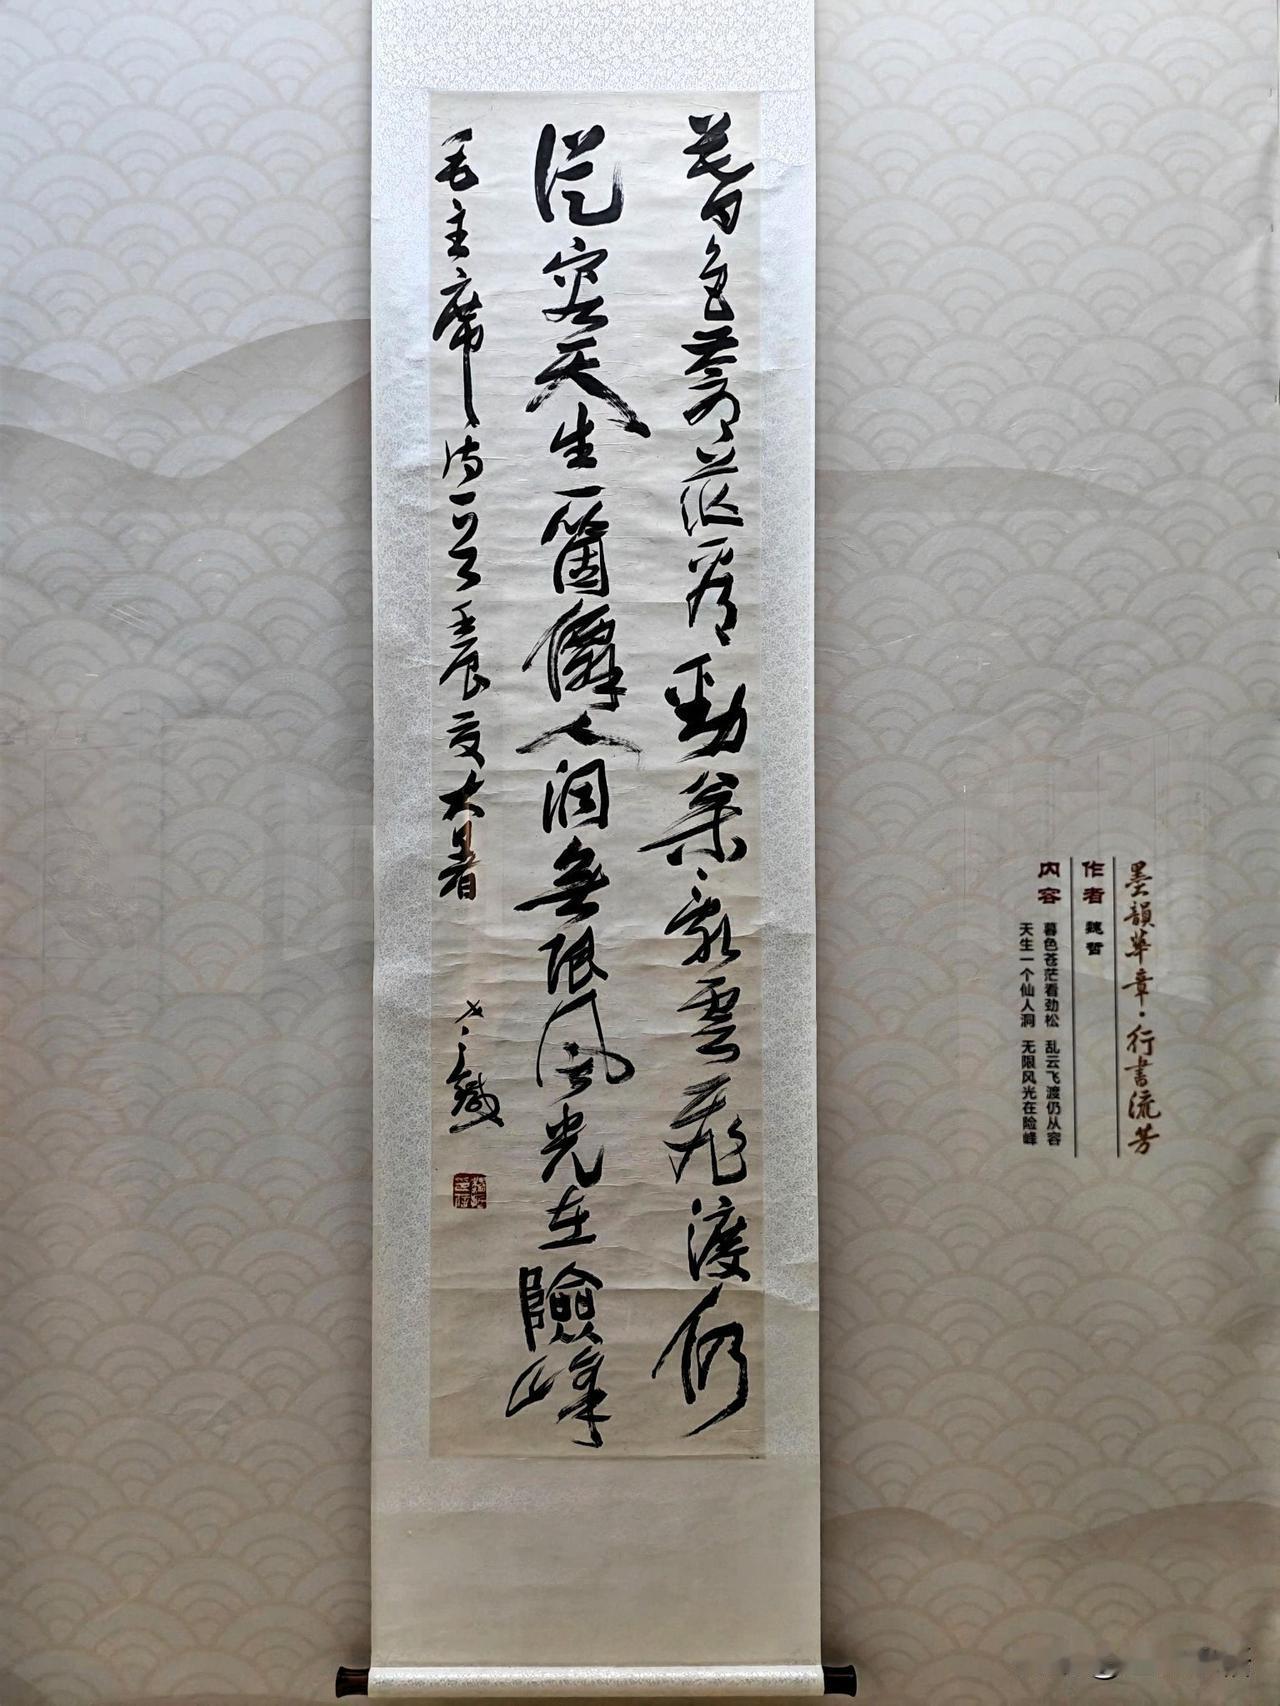 暮色蒼茫看勁松亂雲飛渡仍
從容天生一箇僊人洞無限風光在險峰
毛主席詩一首壬辰夏大暑
墨韻華章·行書流芳
作者 魏哲
内容 暮色苍茫看劲松 乱云飞渡仍从容
天生一个仙人洞 无限风光在险峰